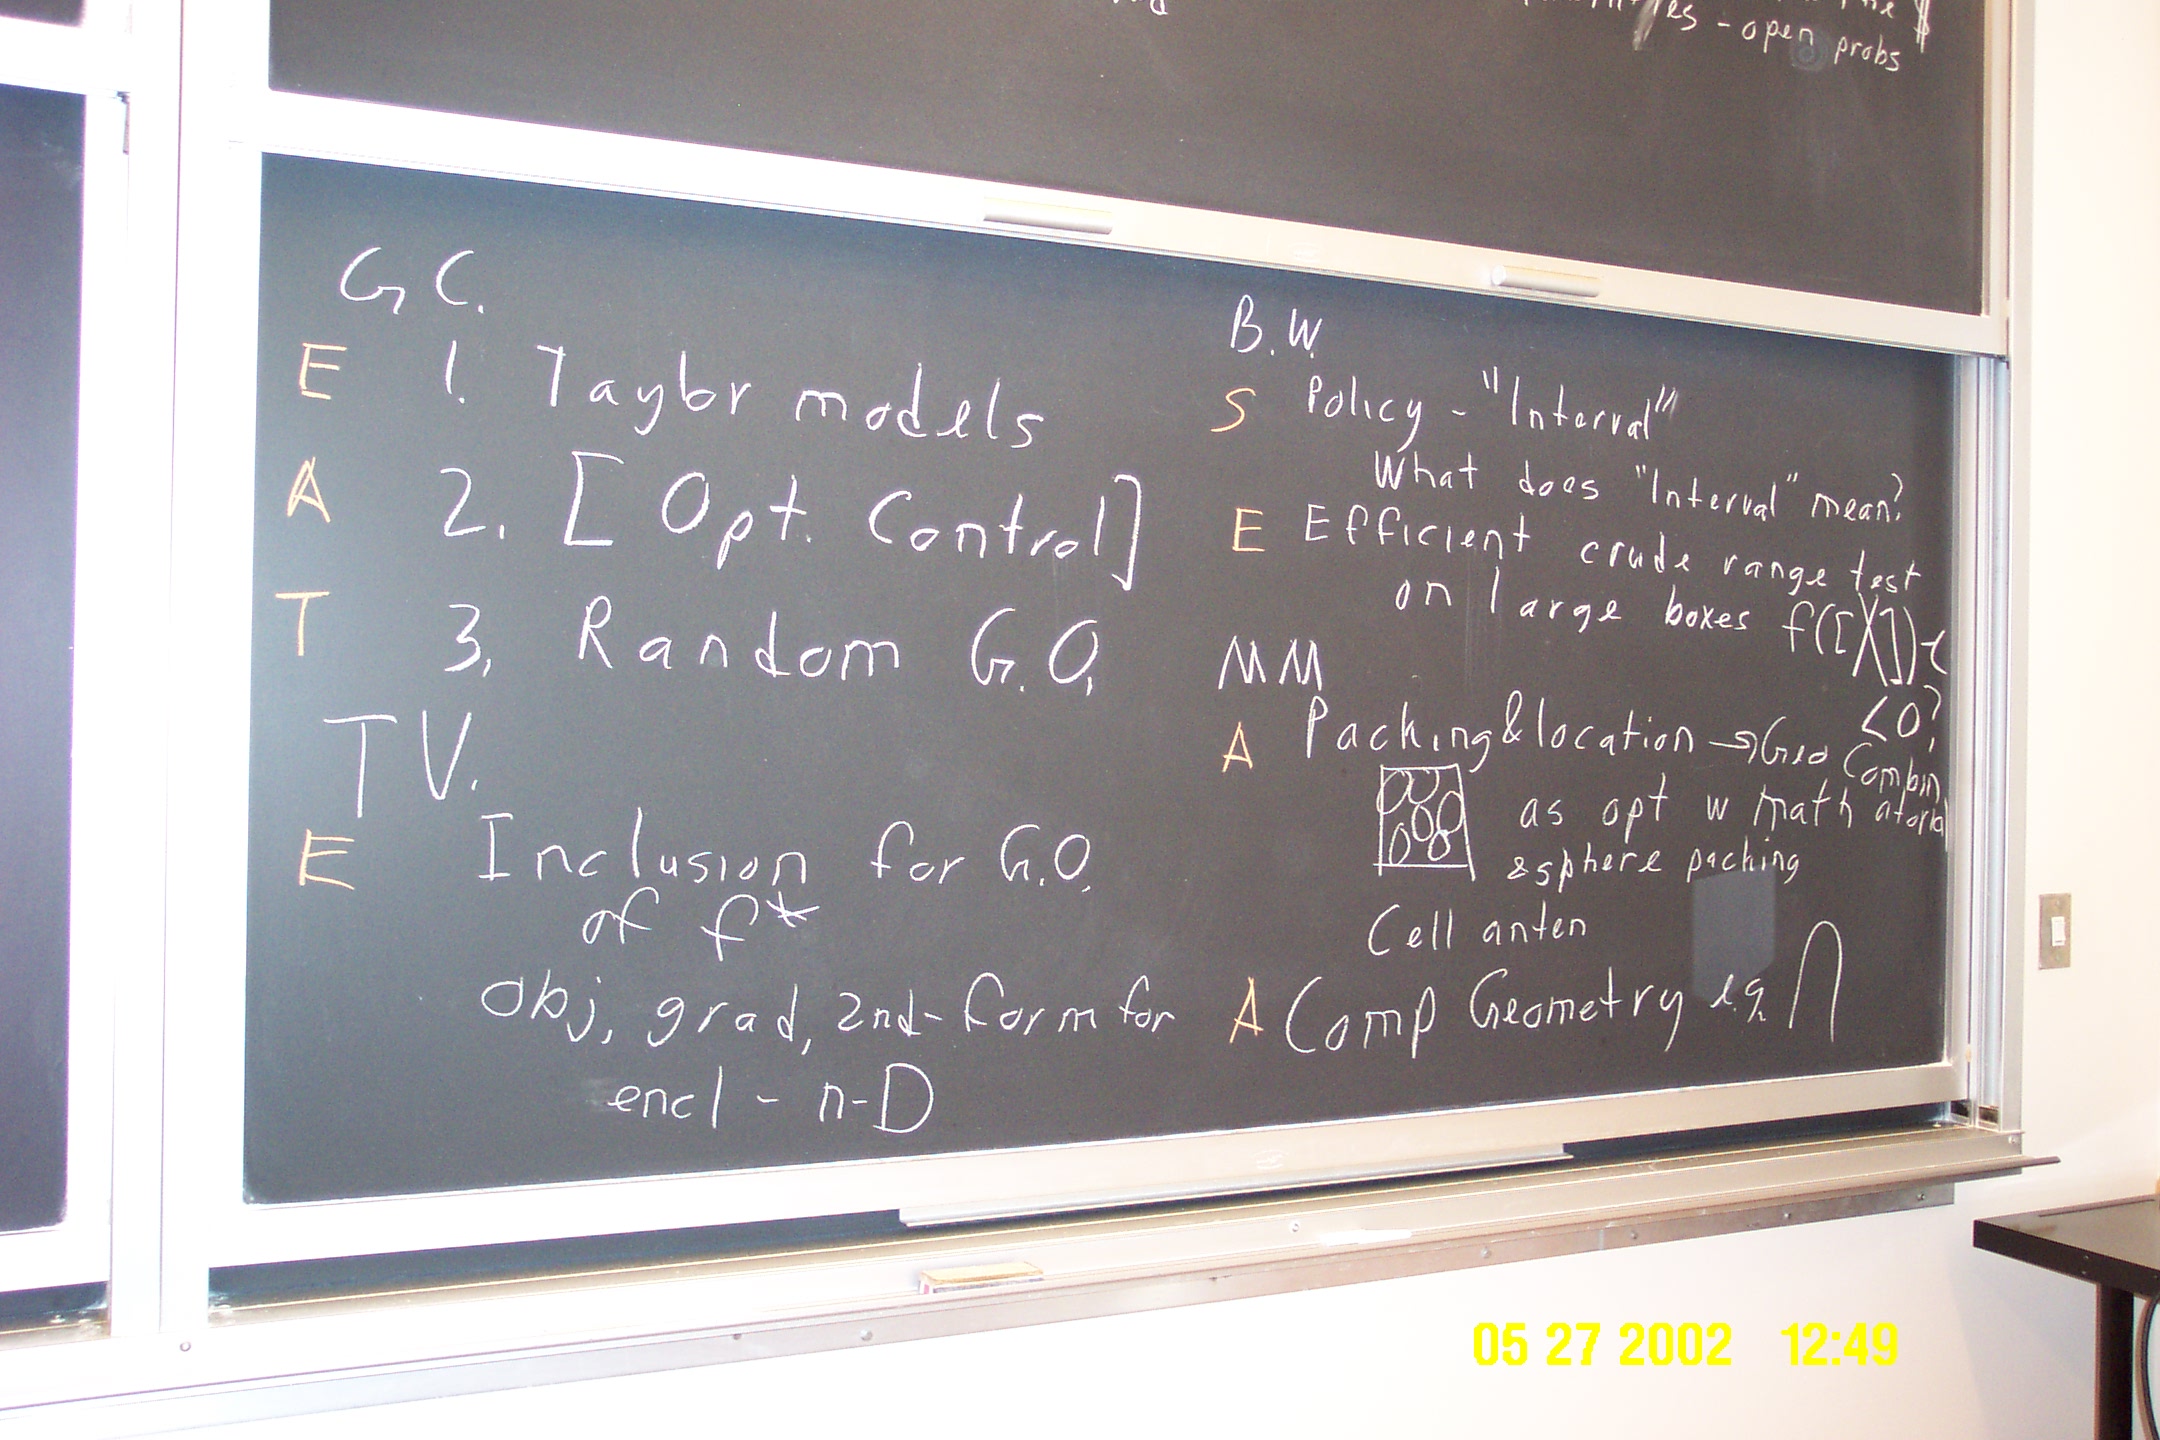 es - open probs
G C.
E 1. Taylor models
A 2. [Opt. Control]
T 3. Random G.O.
TV.
E Inclusion for G.O.
of f*
obj, grad, 2nd-form for
encl - n-D
B.W.
S Policy - "Interval"
What does "Interval" mean?
E Efficient crude range test
on large boxes f([X])
<0?
MM
A Packing & location → Geo Combin
as opt w math atorial
& sphere packing
Cell anten
A Comp Geometry e.g. ∩
05 27 2002 12:49